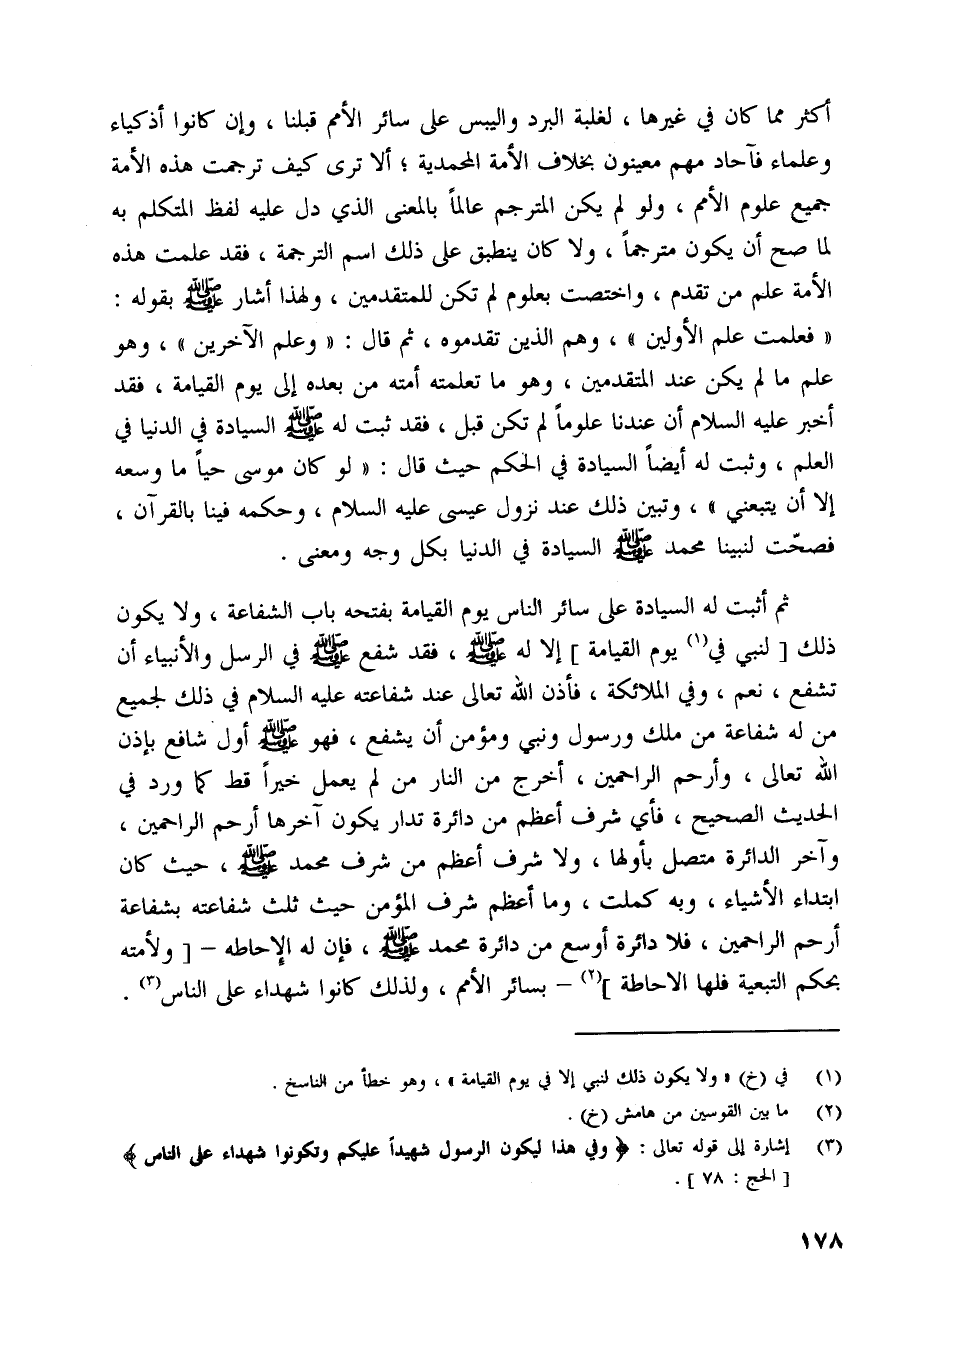 أكثر مما كان في غيرها ، لغلبة البرد واليبس على سائر الأمم قبلنا ، وإن كانوا أذكياء
وعلماء فآحاد مهم معينون بخلاف الأمة المحمدية ؛ ألا ترى كيف ترجمت هذه الأمة
جميع علوم الأمم ، ولو لم يكن المترجم عالماً بالمعنى الذي دل عليه لفظ المتكلم به
لما صح أن يكون مترجماً ، ولا كان ينطبق على ذلك اسم الترجمة ، فقد علمت هذه
الأمة علم من تقدم ، واختصت بعلوم لم تكن للمتقدمين ، ولهذا أشار ﷺ بقوله :
« فعلمت علم الأولين » ، وهم الذين تقدموه ، ثم قال : « وعلم الآخرين » ، وهو
علم ما لم يكن عند المتقدمين ، وهو ما تعلمته أمته من بعده إلى يوم القيامة ، فقد
أخبر عليه السلام أن عندنا علوماً لم تكن قبل ، فقد ثبت له ﷺ السيادة في الدنيا في
العلم ، وثبت له أيضاً السيادة في الحكم حيث قال : « لو كان موسى حياً ما وسعه
إلا أن يتبعني » ، وتبين ذلك عند نزول عيسى عليه السلام ، وحكمه فينا بالقرآن ،
فصحّت لنبينا محمد ﷺ السيادة في الدنيا بكل وجه ومعنى .
ثم أثبت له السيادة على سائر الناس يوم القيامة بفتحه باب الشفاعة ، ولا يكون
ذلك [ لنبي في(١) يوم القيامة ] إلا له ﷺ ، فقد شفع ﷺ في الرسل والأنبياء أن
تشفع ، نعم ، وفي الملائكة ، فأذن الله تعالى عند شفاعته عليه السلام في ذلك لجميع
من له شفاعة من ملك ورسول ونبي ومؤمن أن يشفع ، فهو ﷺ أول شافع بإذن
الله تعالى ، وأرحم الراحمين ، أخرج من النار من لم يعمل خيراً قط كما ورد في
الحديث الصحيح ، فأي شرف أعظم من دائرة تدار يكون آخرها أرحم الراحمين ،
وآخر الدائرة متصل بأولها ، ولا شرف أعظم من شرف محمد ﷺ ، حيث كان
ابتداء الأشياء ، وبه كملت ، وما أعظم شرف المؤمن حيث ثلث شفاعته بشفاعة
أرحم الراحمين ، فلا دائرة أوسع من دائرة محمد ﷺ ، فإن له الإحاطه – [ ولأمته
بحكم التبعية فلها الاحاطة ](٢) – بسائر الأمم ، ولذلك كانوا شهداء على الناس(٣) .
(١) في (خ) « ولا يكون ذلك لنبي إلا في يوم القيامة » ، وهو خطأ من الناسخ .
(٢) ما بين القوسين من هامش (خ) .
(٣) إشارة إلى قوله تعالى : ﴿ وفي هذا ليكون الرسول شهيداً عليكم وتكونوا شهداء على الناس ﴾
[ الحج : ٧٨ ] .
١٧٨